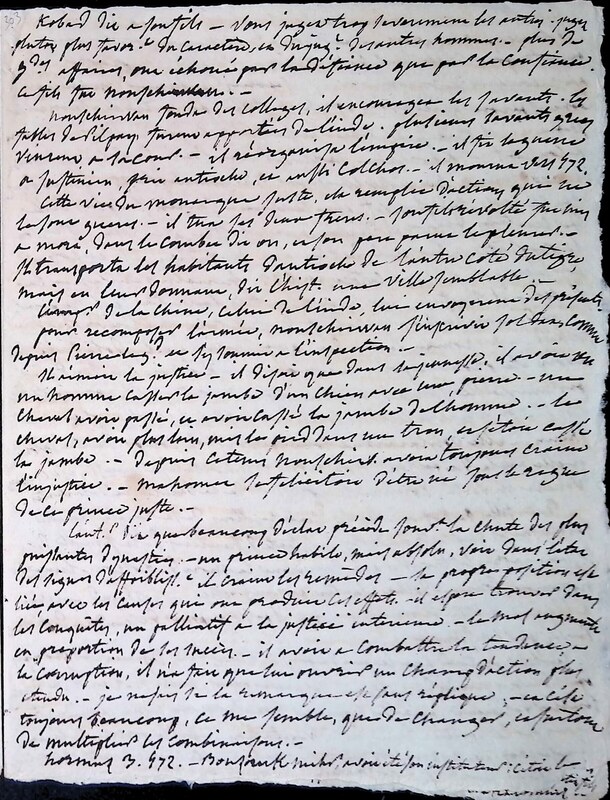 303
Kobad dit a son fils - vous jugez trop severement les autres. jugez
plutot plus favor.t du caractere, et du jug.t des autres hommes. - plus de
g.des affaires, ont échoué par la défiance que par la confiance.
ce fils fut nouschirwan. -
nouschirvan fonda des colleges, il encouragea les savants. les
fables de Pilpay furent apportées de l'inde. plusieurs savants grecs
vinrent a sa cour. - il réorganisa l'empire. - il fit la guerre
a Justinien, prit antioche, et aussi Colchos. - il mourut vers 572.
Cette vie du monarque juste, est remplie d'actions qui ne
le sont gueres. - il tua ses deux freres. - son fils révolté fut mis
a mort, dans le combat dit on, et son pere parut le pleurer. -
Il transporta les habitants d'antioche de l'autre coté du tigre,
mais en leur donnant, dit l'hist. une ville semblable. -
l'emp.r de la chine, celui de l'inde, lui envoyerent des présents.
pour recomposer l'armée, nouschirvan s'inscrivit soldat, comme
depuis Pierre le g.d et se soumit a l'inspection. -
Il aimoit la justice - il disoit que dans sa jeunesse, il avoit vu
un homme casser la jambe d'un chien avec une pierre. - un
cheval avoit passé, et avoit cassé la jambe de l'homme. - le
cheval, avoit plus loin, mis le pied dans un trou, et s'etoit cassé
la jambe. - Depuis ce tems nouschirv. avoit toujours craint
l'injustice. - mahomet se félicitoit d'etre né sous le regne
de ce prince juste. -
L'aut.r dit que beaucoup d'éclat précede souv.t la chute des plus
puissantes dynasties. - un prince habile, mais absolu, voit dans l'état
des signes d'affoibliss.t il craint les remedes - sa propre position est
liée avec les causes que ont produit ces effets. - il espere trouver dans
les conquêtes, un palliatif a la justice interieure. - le mal augmente
en proportion de ses succès. - il avoit a combattre la tendance a
la corruption, il n'a fait que lui ouvrir un champ d'action plus
etendu. - je ne sais si la remarque est sans replique, - c'est
toujours beaucoup, ce me semble, que de changer, et surtout
de multiplier les combinaisons. -
hormuz 3. 572. - Bouzourk mihr avoit été son instituteur. c'etoit le